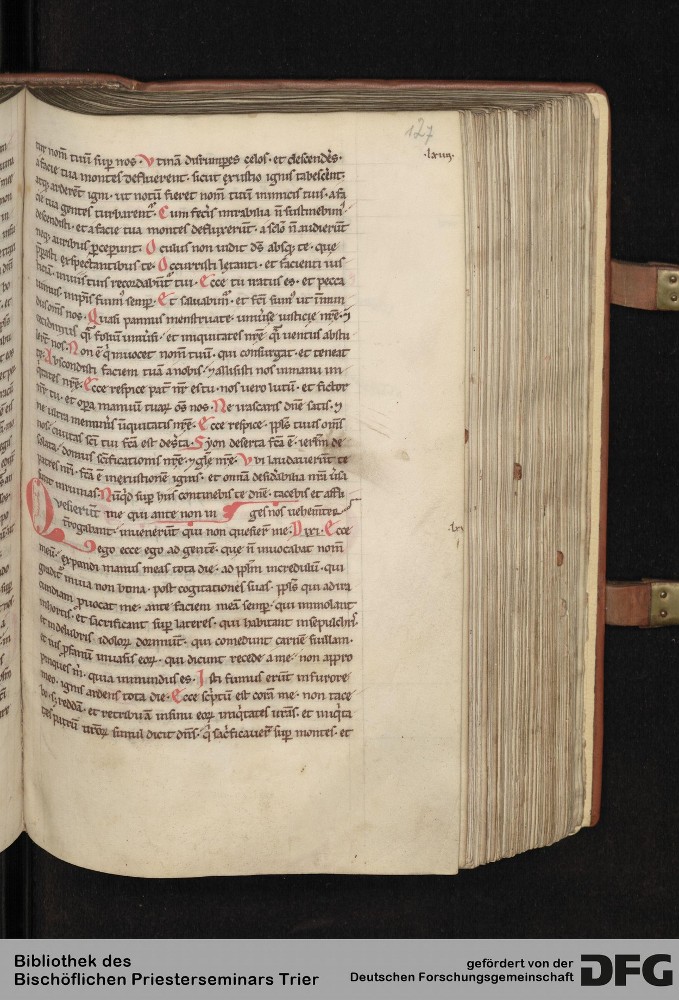 127
tur nom̄ tuū suꝑ nos. Utinā dirumpes celos. et descendēs.
a facie tua montes defluerent. sicut exustio ignis tabescēnt.
aq̄ arderēt igni. ut notū fieret nom̄ tuū inimicis tuis. a fa
cie tua gentes turbarent᷑. Cum fecīs mirabilia n̄ sustinebim᷒.
.lxiiij.
descendisti. et a facie tua montes defluxerūt. a sclo n̄ audierūt
neq᷒ auribus ꝑceperunt. Oculus non uidit ds̄ absq᷒ te. que
p̄parasti exspectantibus te. Occurristi letanti. et facienti ius
ticiā. in uiis tuis recordabūt᷑ tui. Ecce tu iratus es. et pecca
uimus. in ip̄is fuim᷒ semꝑ. Et saluabim᷒. et fc̄i sum᷒ ut īmun
dus om̄s nos. Quasi pannus menstruate. uniūse iusticie nr̄e. ⁊
cecidimus q̄ foliū uniūsi. et iniquitates nr̄e q̄ uentus abstu
lert̄ nos. Non ē q̇ inuocet nom̄ tuū. qui consurgat. et teneat
te. Abscondisti faciem tuā a nobis. ⁊ allisisti nos in manu ini
quitatis nr̄e. Ecce respice pat᷑ nr̄ es tu. nos uero lutū. et fictor
nr̄ tu. et oꝑa manuū tuaꝝ om̄s nos. Ne irascaris dn̄e satis. ⁊
ne ultra memineris iniquitatis nr̄e. Ecce respice. ppl̄s tuus om̄s
nos. ciuitas sc̄i tui fc̄a est desc̄ta. Syon deserta fc̄a ē. ierl̄m de
solata. domus sc̄ificationis nr̄e. ⁊ gl̄e nr̄e. Ubi laudauerūt te
patres nr̄i. fc̄a ē in exustionē ignis. et omīa desidabilia nr̄a ūsa
sunt in ruinas. Nūqͥd suꝑ hiis continebis te dn̄e. tacebis et affli
Quesierunt me qui ante non in ges nos uehem̄ter.
t̄rogabant. inuenerūt qui non quesier̄t me. Dixi. Ecce
.lxv.
ego ecce ego ad gentē. que n̄ inuocabat nom̄
meū. expandi manus meas tota die. ad ppl̄m incredulū. qui
gradit᷑ in uia non bona. post cogitationes suas. ppl̄s qui ad ira
cundiam ꝓuocat me. ante faciem meā semꝑ. qui immolant
in hortis. et sacrificant suꝑ lateres. qui habitant in sepulchr̄.
et in delubris idoloꝝ dormiūt. qui comedunt carnē suillam.
et ius ꝓfanū in uasis eoꝝ. qui dicunt recede a me. non appro
pinques m̄. quia inmundus es. Isti fumus erūt in furore
meo. ignis ardens tota die. Ecce sc̄ptū est corā me. non tace
bo. sꝫ reddā. et retribuā in sinu eoꝝ iniq̇tates ur̄as. et iniq̇ta
tes patrū ur̄oꝝ simul dicit dn̄s. q̇ sac̄ficauer̄t suꝑ montes. et
Bibliothek des
Bischöflichen Priesterseminars Trier
gefördert von der
Deutschen Forschungsgemeinschaft
DFG